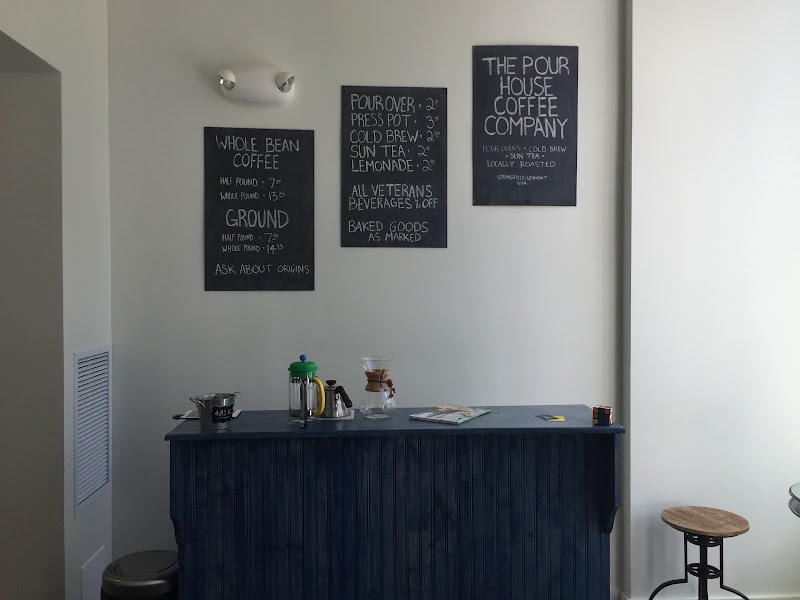 WHOLE BEAN
COFFEE
HALF POUND • 7.
WHOLE POUND • 13.25
GROUND
HALF POUND • 7.
WHOLE POUND • 14.
ASK ABOUT ORIGINS
POUR OVER • 2.
PRESS POT • 3.
COLD BREW • 2.
SUN TEA • 2.
LEMONADE • 2.
ALL VETERANS
BEVERAGES ½ OFF
BAKED GOODS
AS MARKED
THE POUR
HOUSE
COFFEE
COMPANY
POUR OVERS • COLD BREW
• SUN TEA •
LOCALLY ROASTED
SPRINGFIELD VERMONT
USA